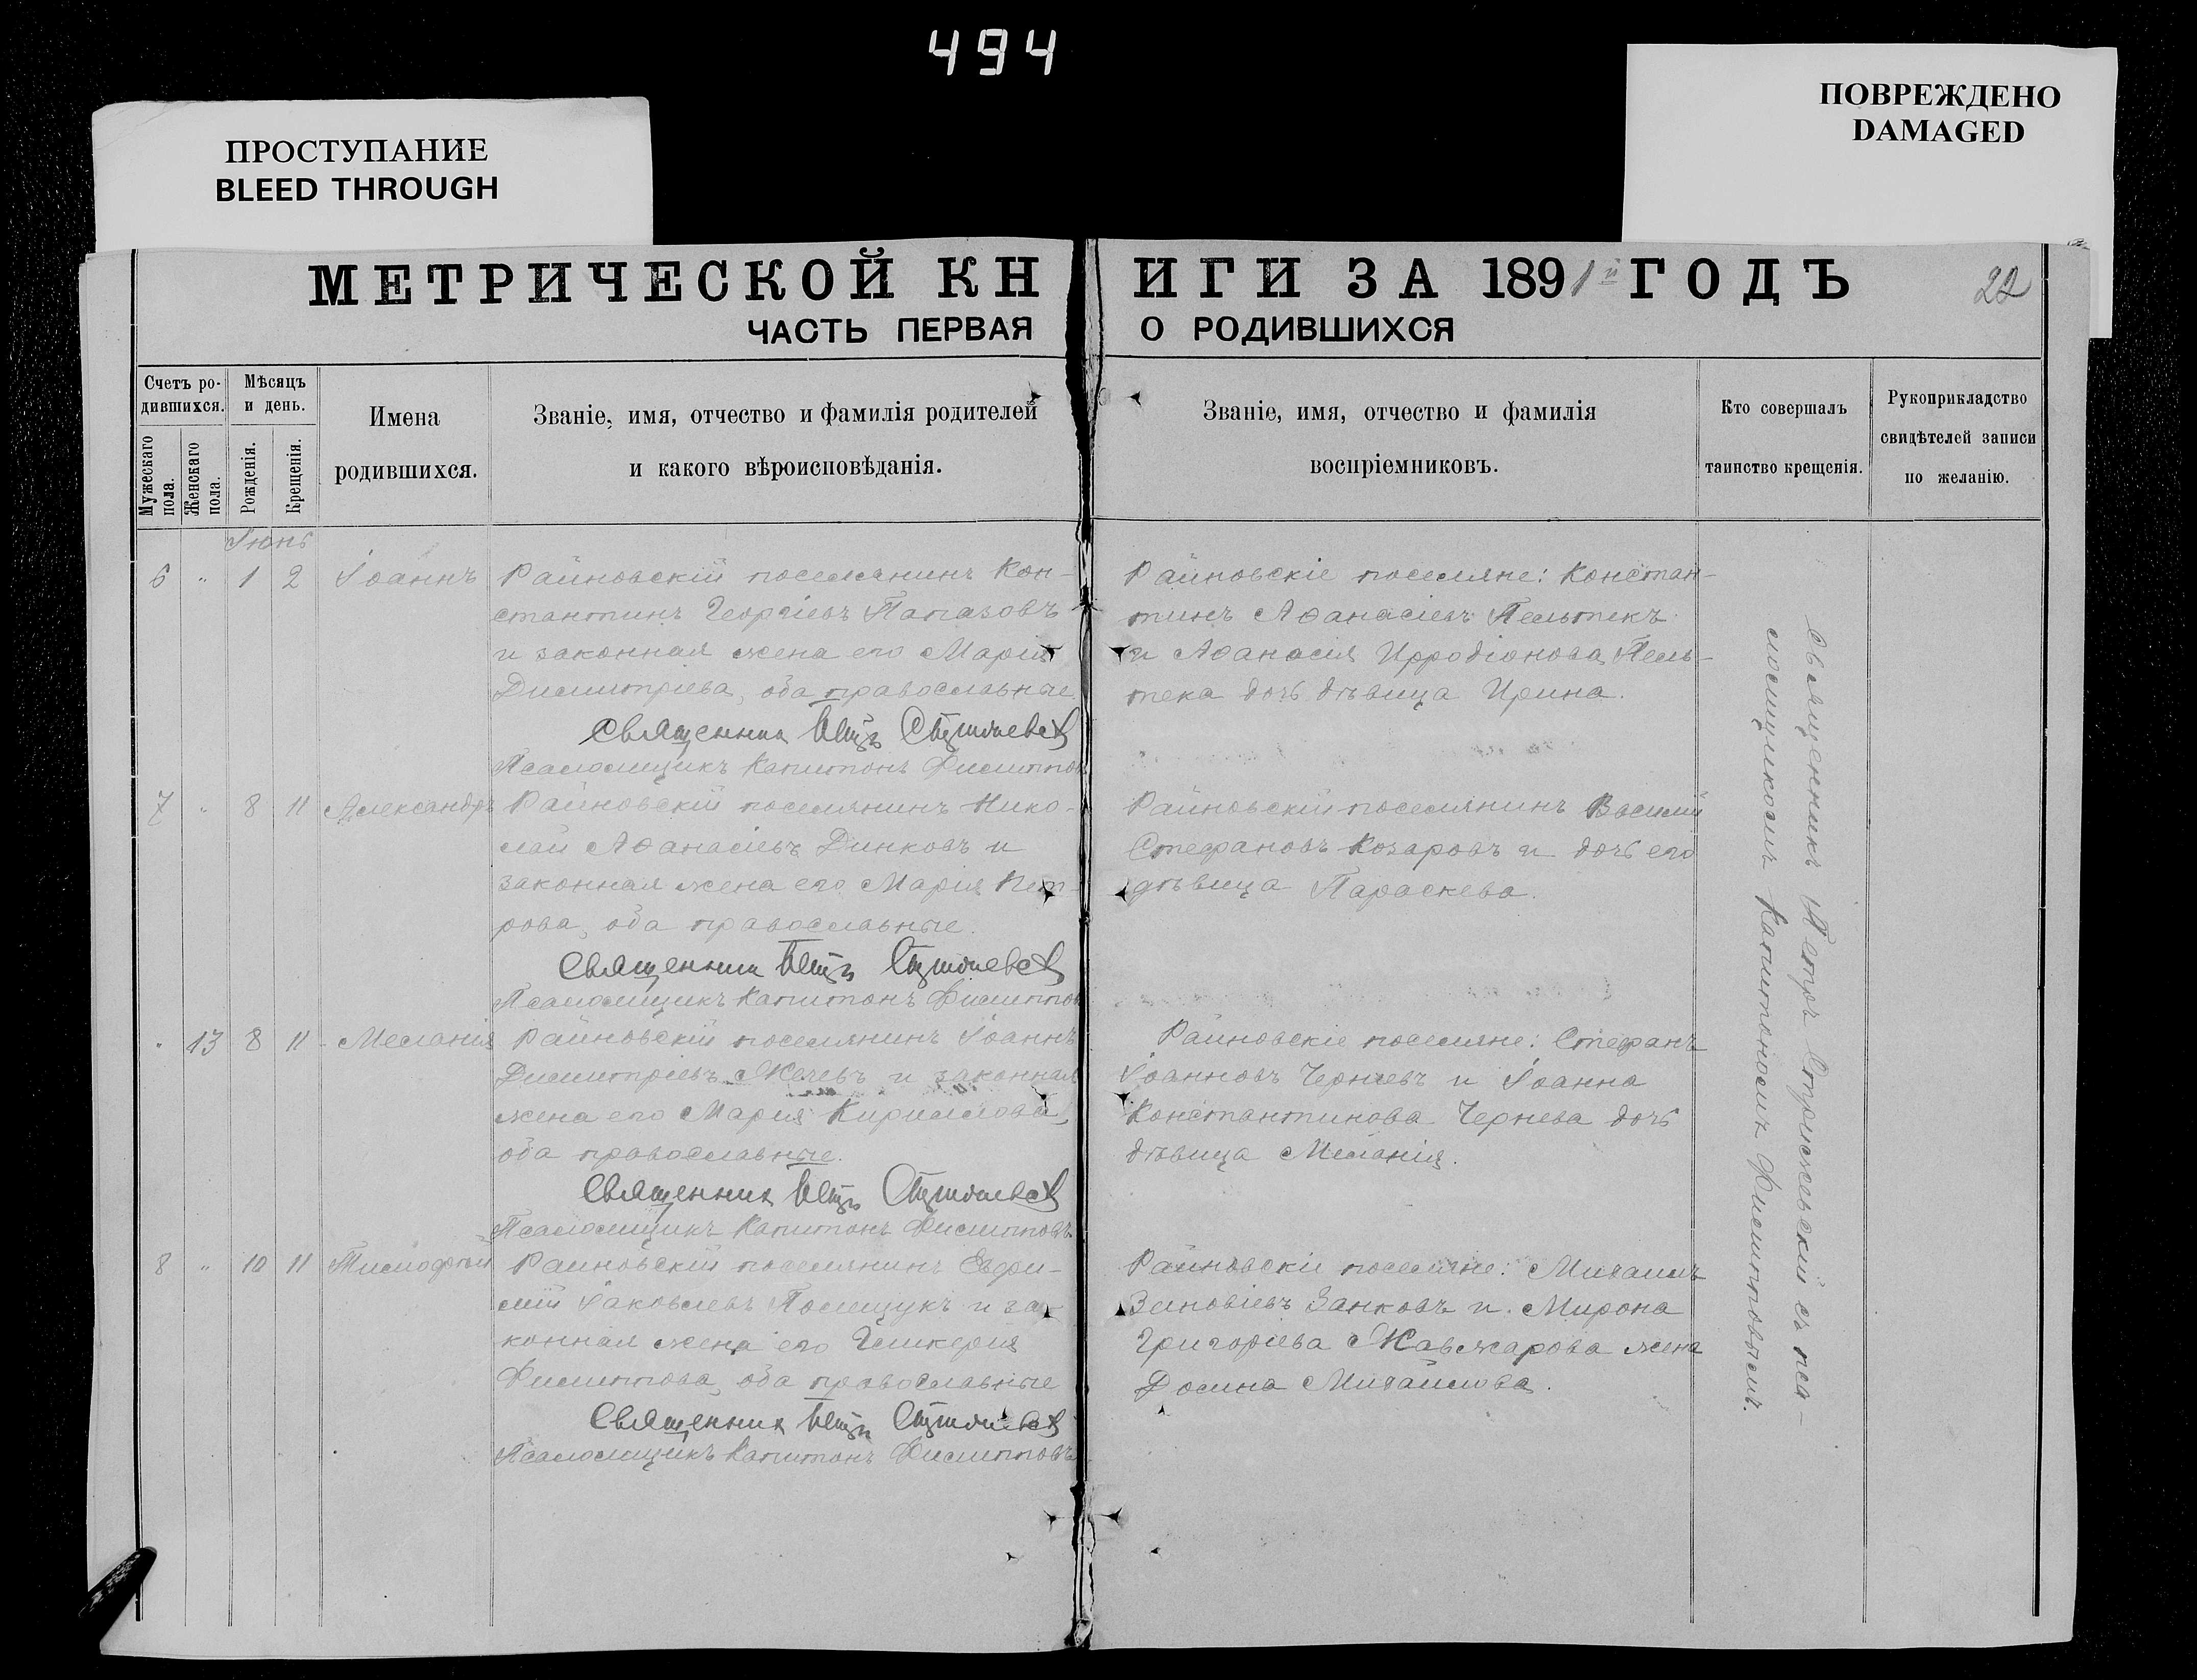 494
ПРОСТУПАНИЕ
BLEED THROUGH
ПОВРЕЖДЕНО
DAMAGED
МЕТРИЧЕСКОЙ КНИГИ ЗА 1891й ГОДЪ
22
ЧАСТЬ ПЕРВАЯ О РОДИВШИХСЯ
Счетъ ро-
дившихся.
Мужескаго пола.
Женскаго пола.
Мѣсяцъ
и день.
Рожденія.
Крещенія.
Имена
родившихся.
Званіе, имя, отчество и фамилія родителей
и какого вѣроисповѣданія.
Званіе, имя, отчество и фамилія
воспріемниковъ.
Кто совершалъ
таинство крещенія.
Рукоприкладство
свидѣтелей записи
по желанію.
Іюнь
6 " 1 2 Іоаннъ
Раиновскій поселянинъ Кон-
стантинъ Георгіевъ Папазовъ
и законная жена его Марія
Димитріева, оба православные.
Священник Петръ
Псаломщикъ Капитонъ Филиппов
Раиновскіе поселяне: Констан-
тинъ Аѳанасіевъ Пельтекъ
и Аѳанасія Иродіонова Пель-
тека дочь дѣвица Ирина.
7 " 8 11 Александръ
Раиновскій поселянинъ Нико-
лай Аѳанасіевъ Динковъ и
законная жена его Марія Пет-
рова, оба православные.
Священник Петръ
Псаломщикъ Капитонъ Филиппов
Раиновскій поселянинъ Василій
Стефановъ Козаровъ и дочь его
дѣвица Параскева.
" 13 8 11 Меланія
Раиновскій поселянинъ Іоаннъ
Димитріевъ Жечевъ и законная
жена его Марія Кириллова,
оба православные.
Священник Петръ
Псаломщикъ Капитонъ Филипповъ
Раиновскіе поселяне: Стефанъ
Іоанновъ Черневъ и Іоанна
Константинова Чернева дочь
дѣвица Меланія.
8 " 10 11 Тимофей
Раиновскій поселянинъ Евфи-
мій Іаковлевъ Полищукъ и за-
конная жена его Гликерія
Филиппова, оба православные
Священник Петръ
Псаломщикъ Капитонъ Филипповъ
Раиновскіе поселяне: Михаилъ
Зиновіевъ Занковъ и Мирона
Григоріева Жавжарова жена
Домна Михаилова.
Священникъ Петръ Стрижевскій съ пса-
ломщикомъ Капитономъ Филипповымъ.